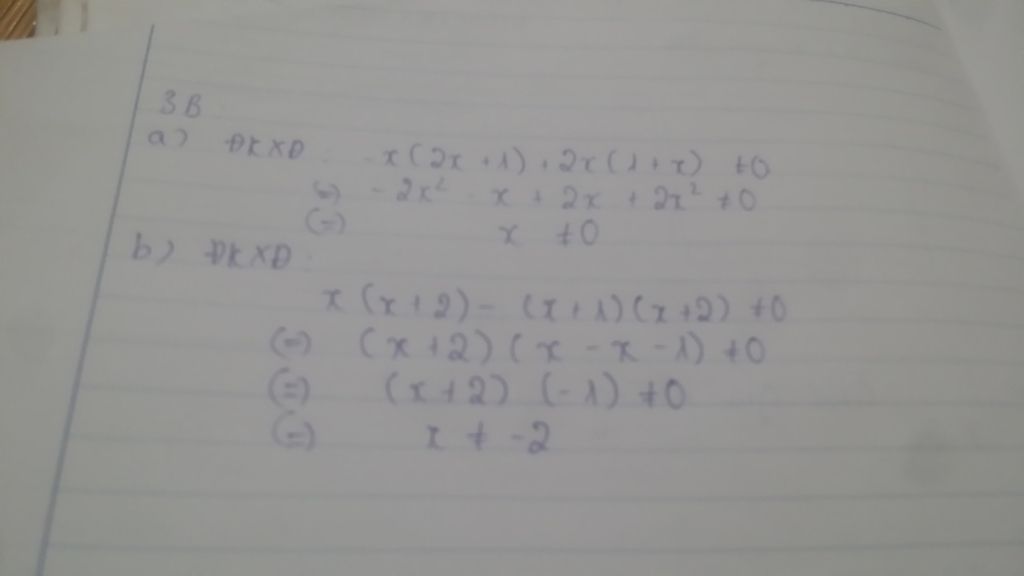 3B
a) ĐKXĐ: -x(2x+1)+2x(1+x) ≠0
(=) -2x² - x + 2x + 2x² ≠0
(=) x ≠0
b) ĐKXĐ:
x(x+2)-(x+1)(x+2) ≠0
(=) (x+2)(x-x-1) ≠0
(=) (x+2) (-1) ≠0
(=) x ≠ -2